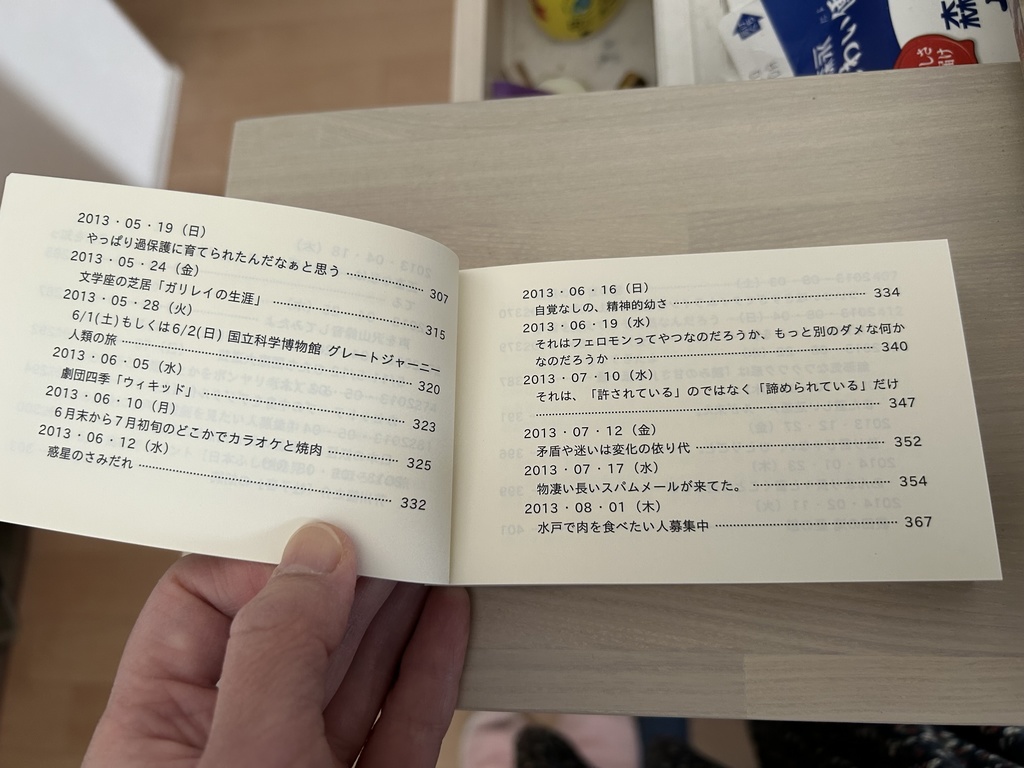 2013・05・19（日）
やっぱり過保護に育てられたんだなぁと思う ………… 307
2013・05・24（金）
文学座の芝居「ガリレイの生涯」 ………… 315
2013・05・28（火）
6/1(土)もしくは6/2(日) 国立科学博物館 グレートジャーニー
人類の旅 ………… 320
2013・06・05（水）
劇団四季「ウィキッド」 ………… 323
2013・06・10（月）
6月末から7月初旬のどこかでカラオケと焼肉 ………… 325
2013・06・12（水）
惑星のさみだれ ………… 332
2013・06・16（日）
自覚なしの、精神的幼さ ………… 334
2013・06・19（水）
それはフェロモンってやつなのだろうか、もっと別のダメな何か
なのだろうか ………… 340
2013・07・10（水）
それは、「許されている」のではなく「諦められている」だけ
………… 347
2013・07・12（金）
矛盾や迷いは変化の依り代 ………… 352
2013・07・17（水）
物凄い長いスパムメールが来てた。 ………… 354
2013・08・01（木）
水戸で肉を食べたい人募集中 ………… 367
森